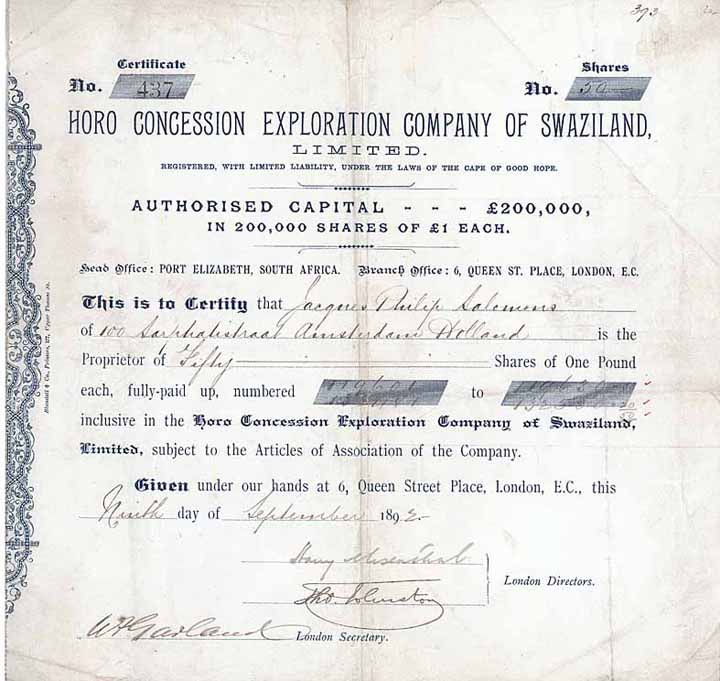 393
Certificate
No. 437
Shares
No. 50
HORO CONCESSION EXPLORATION COMPANY OF SWAZILAND,
LIMITED.
REGISTERED, WITH LIMITED LIABILITY, UNDER THE LAWS OF THE CAPE OF GOOD HOPE.
AUTHORISED CAPITAL - - - £200,000,
IN 200,000 SHARES OF £1 EACH.
Head Office: PORT ELIZABETH, SOUTH AFRICA. Branch Office: 6, QUEEN ST. PLACE, LONDON, E.C.
This is to Certify that Jacques Philip Salomons
of 100 Sarphatistraat Amsterdam Holland is the
Proprietor of Fifty Shares of One Pound
each, fully-paid up, numbered to
inclusive in the Horo Concession Exploration Company of Swaziland,
Limited, subject to the Articles of Association of the Company.
Given under our hands at 6, Queen Street Place, London, E.C., this
Ninth day of September 1892
London Directors.
Tho. Johnston
W Garland London Secretary.
& Co., Printers, Upper Thames St.